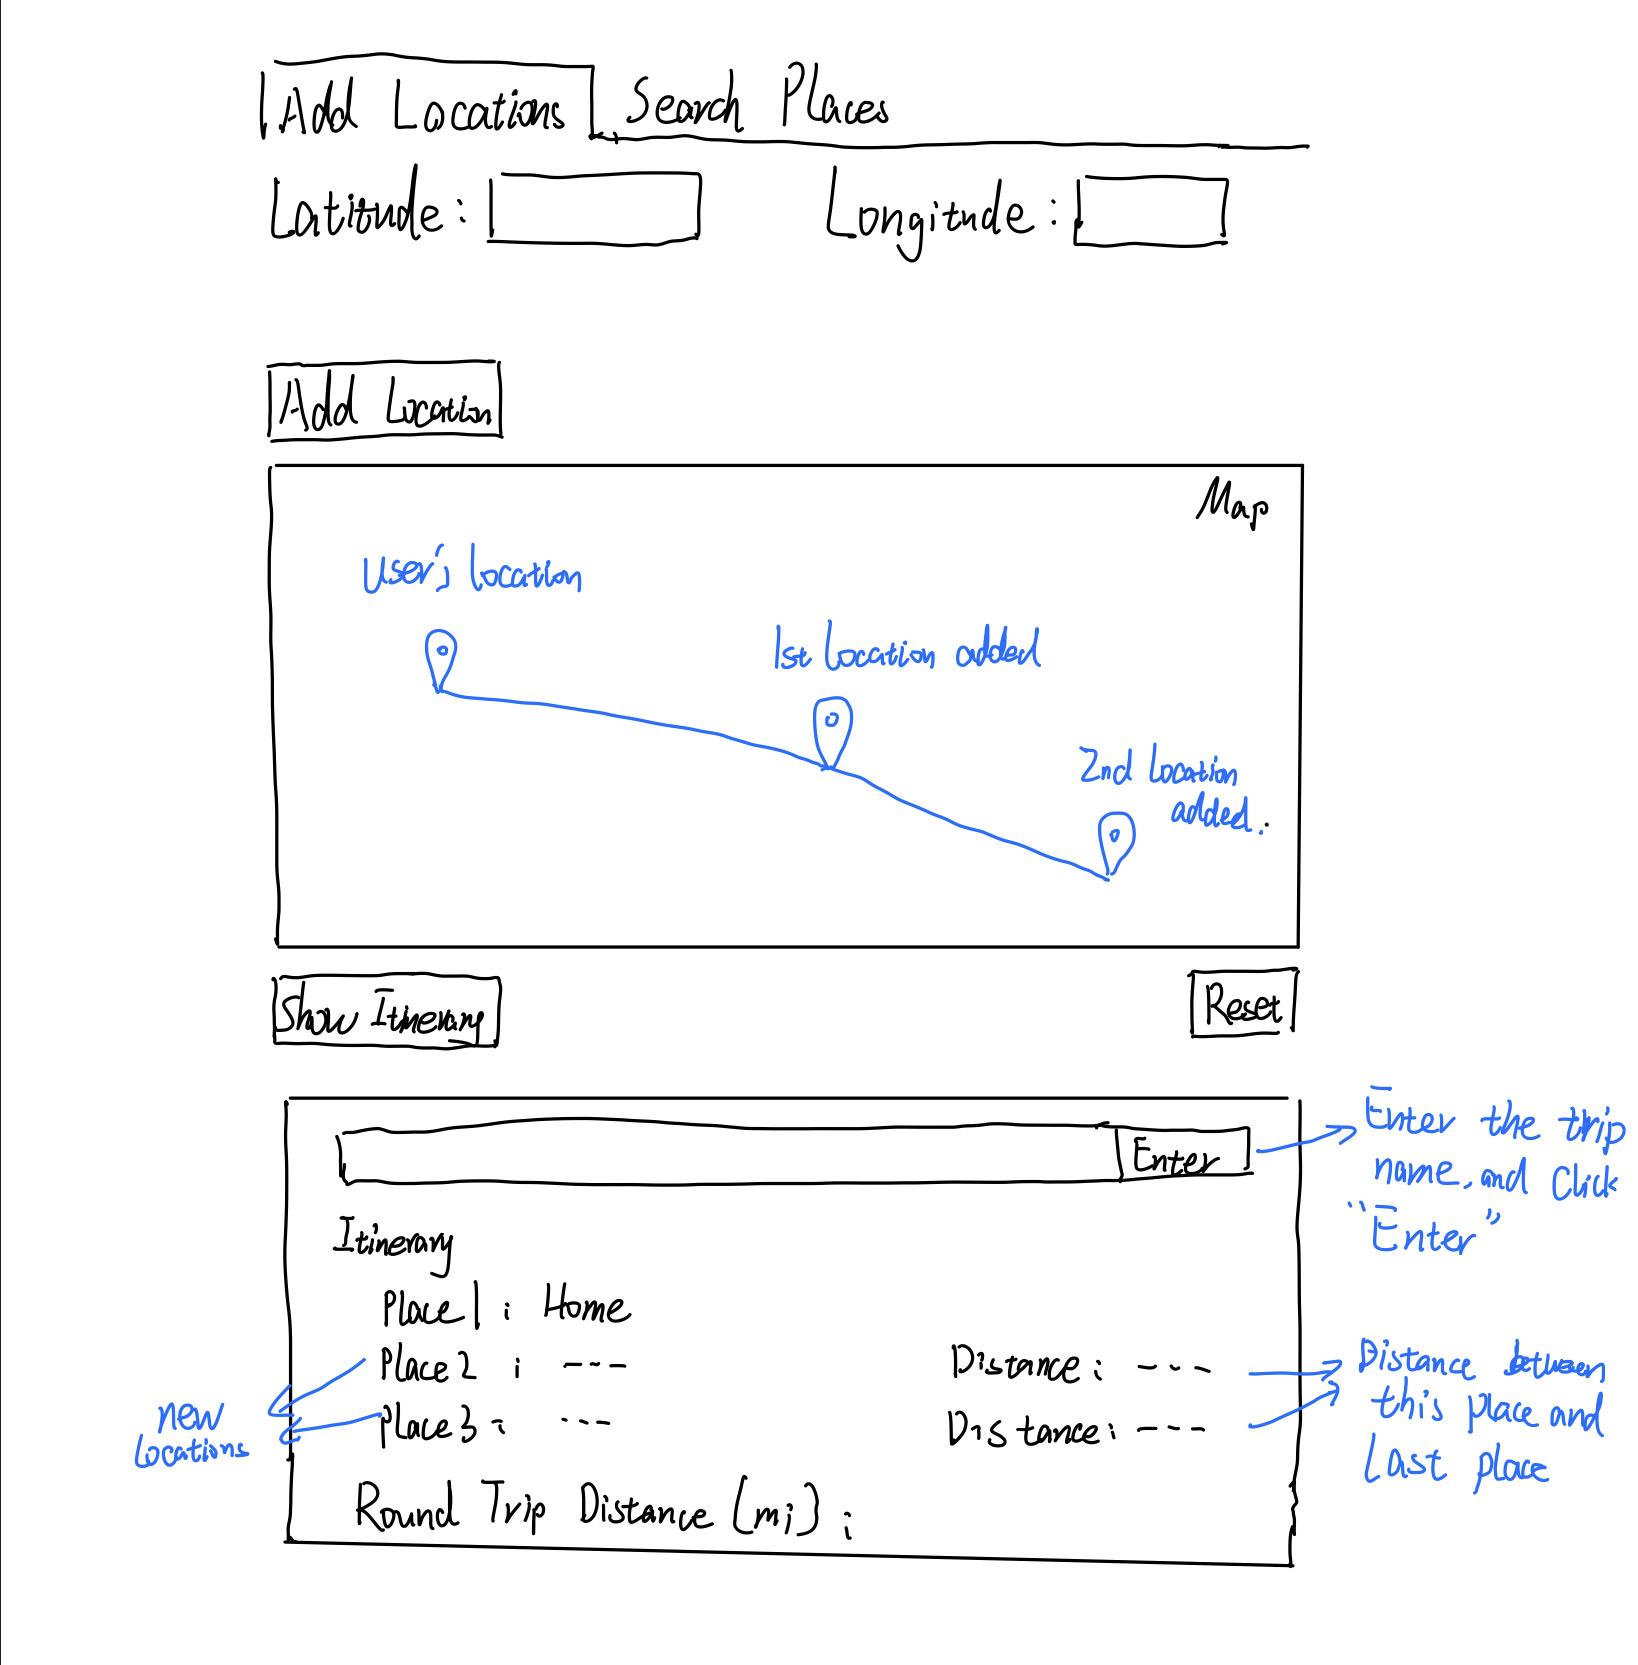 Add Locations Search Places
Latitude: Longitude:
Add Location
Map
User's location
1st location added
2nd location
added.
Show Itinerary Reset
Enter
Enter the trip
name, and click
"Enter"
Itinerary
Place 1: Home
Place 2: --- Distance: ---
Place 3: --- Distance: ---
new
locations
Distance between
this place and
last place
Round Trip Distance (mi):